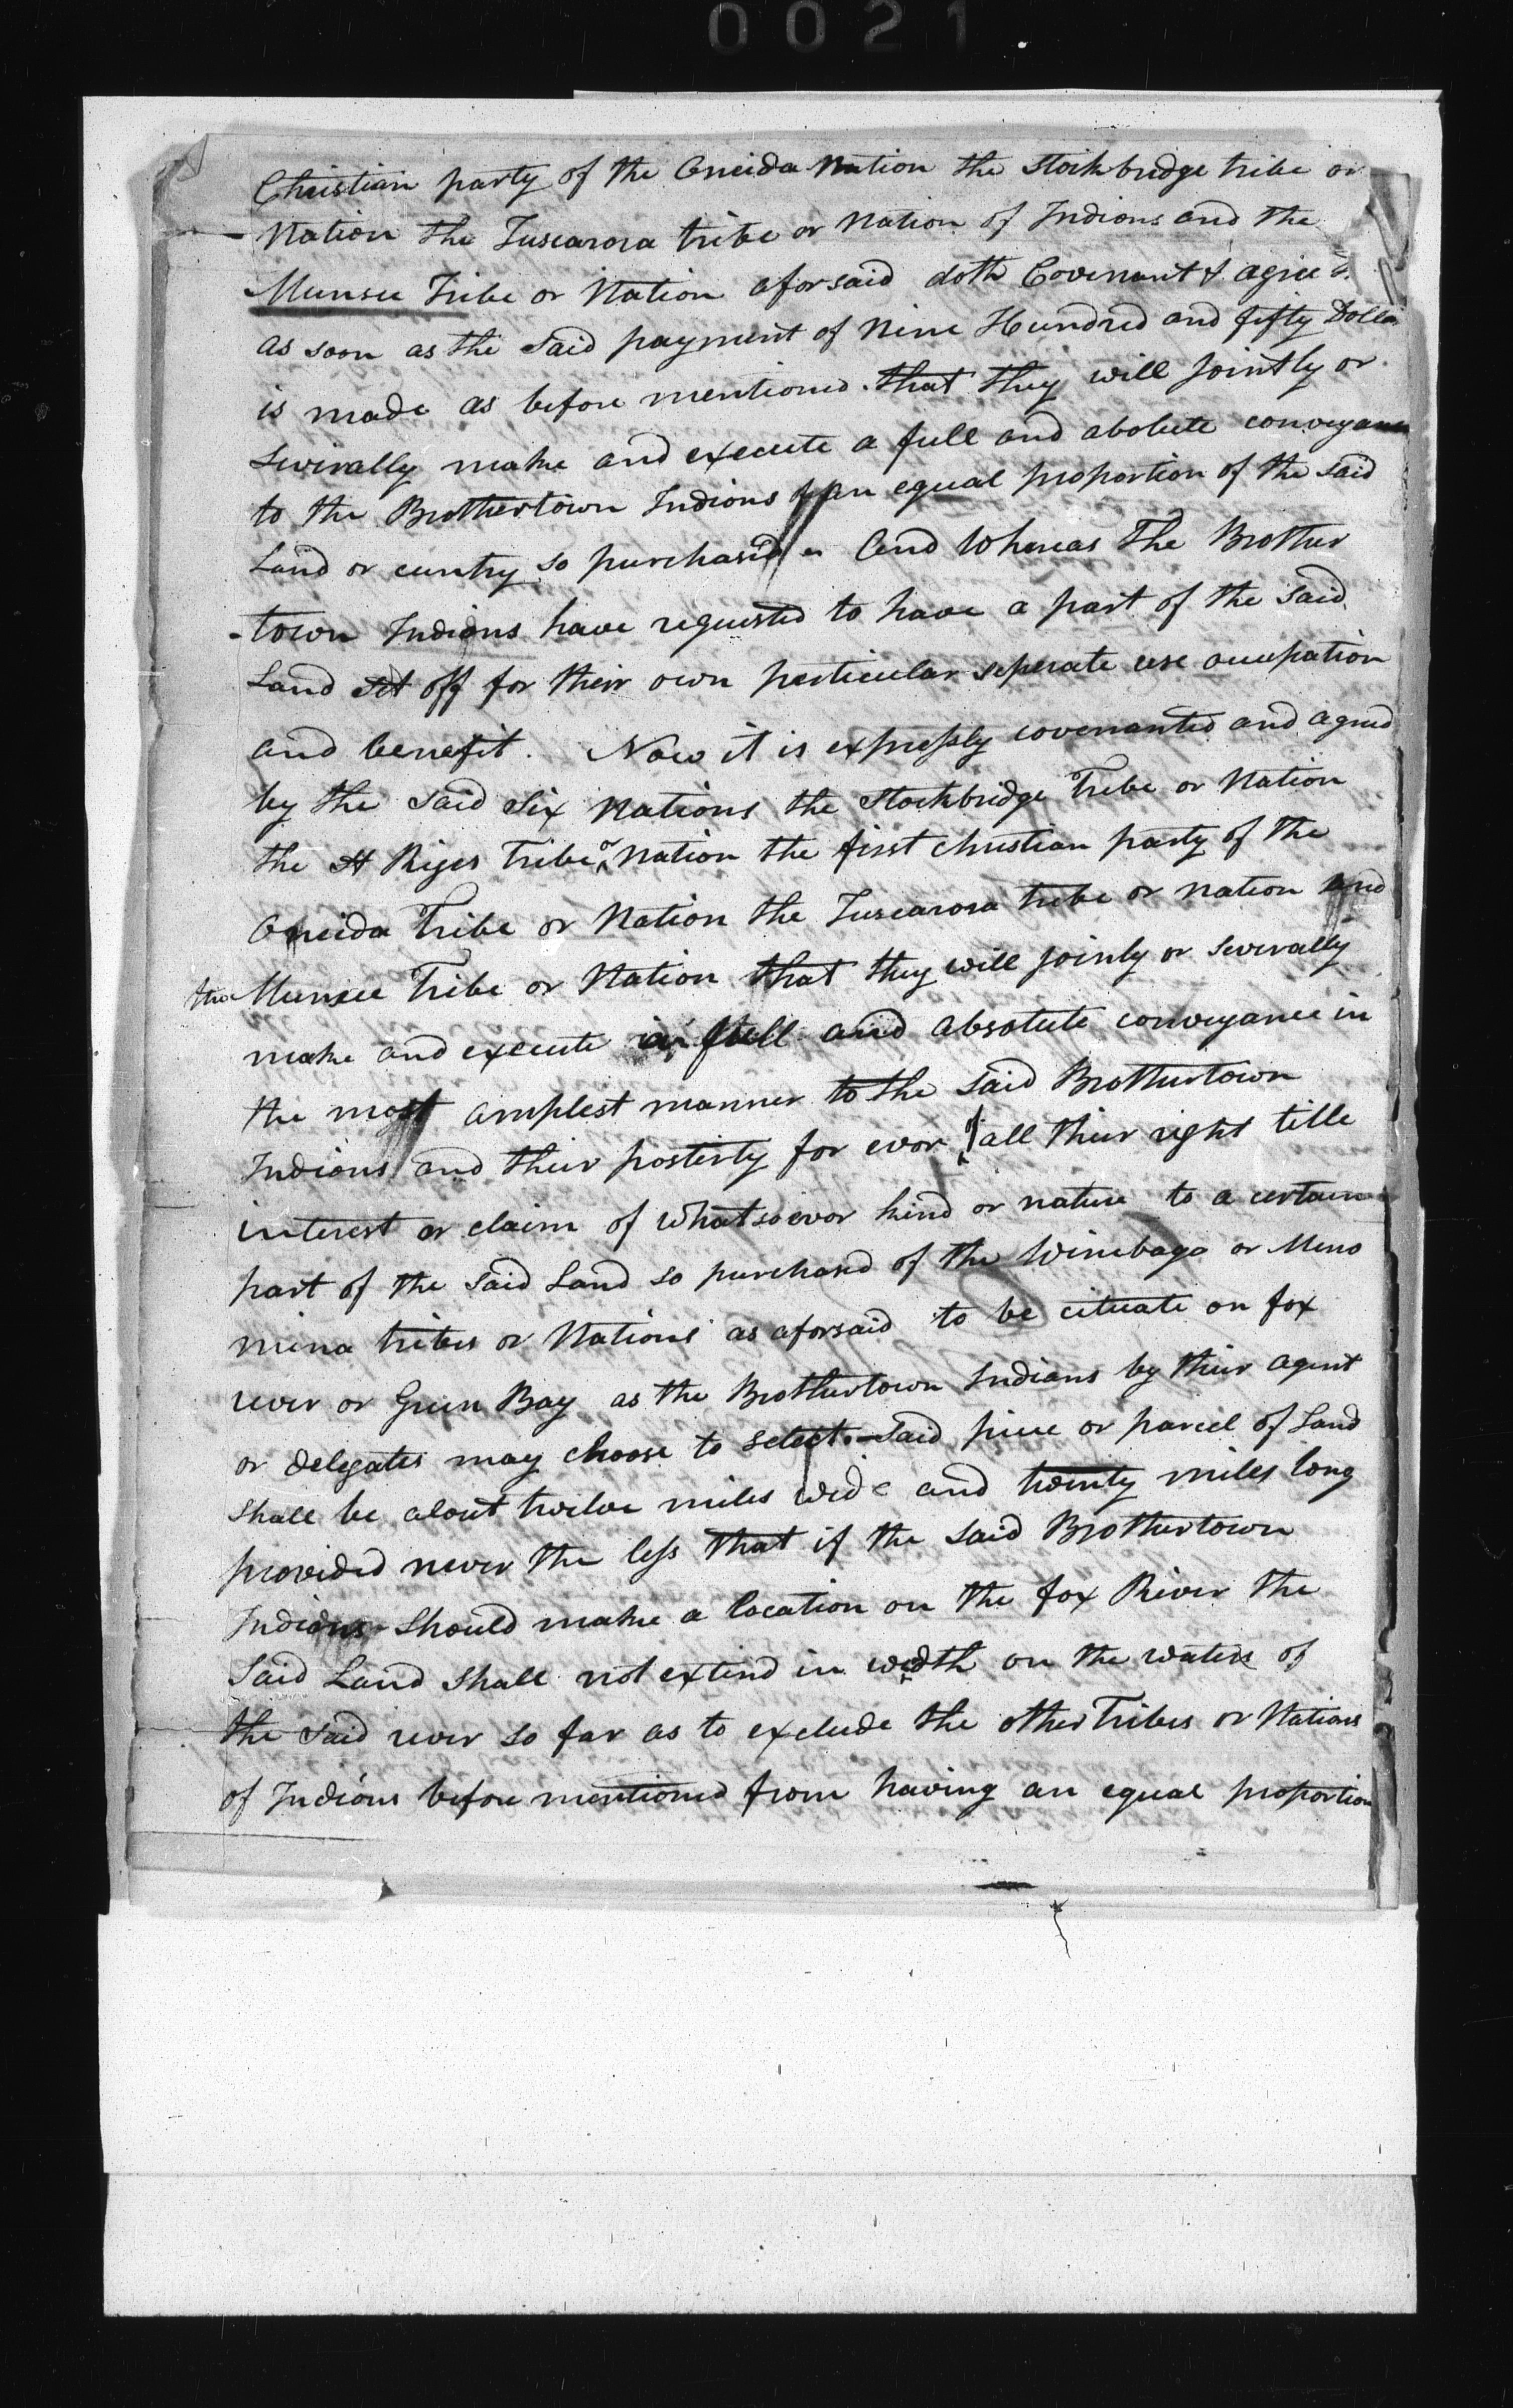 0021
Christian party of the Oneida Nation the Stockbridge tribe or
Nation the Tuscarora tribe or Nation of Indians and the
Munsee Tribe or Nation aforsaid doth Covenant & agree
as soon as the said payment of Nine Hundred and fifty Dolla
is made as before mentioned. that they will jointly or
severally make and execute a full and abolute conveyance
to the Brothertown Indians equal proportion of the said
Land or cuntry so purchased - And Whereas The Brother
-town Indians have requested to have a part of the said
Land set off for their own perticular seperate use occupation
and benefit. Now it is expressly covernanted and agreed
by the said Six Nations the Stockbridge Tribe or Nation
the St Riges Tribe or Nation the first christian party of the
Oneida Tribe or Nation the Tuscarora tribe or nation and
the Munsee Tribe or Nation that they will joinly or severally
make and execute a full and absolute conveyance in
the most amplest manner to the said Brothertown
Indians and their posterty for evor of all their right title
interest or claim of whatsoevor kind or nature to a certain
part of the said Land so purchased of the Winebago or Meno
mina tribes or Nations as aforsaid to be cituate on fox
rever or Green Bay as the Brothertown Indians by their agent
or delegates may choose to select. - Said piece or parcel of Land
shall be about twelve miles wide and twenty miles long
provided never the less that if the said Brothertown
Indians should make a location on the fox River the
said Land shall not extend in width on the waters of
the said rever so far as to exclude the other Tribes or Nations
of Indians before mentioned from having an equal proportion